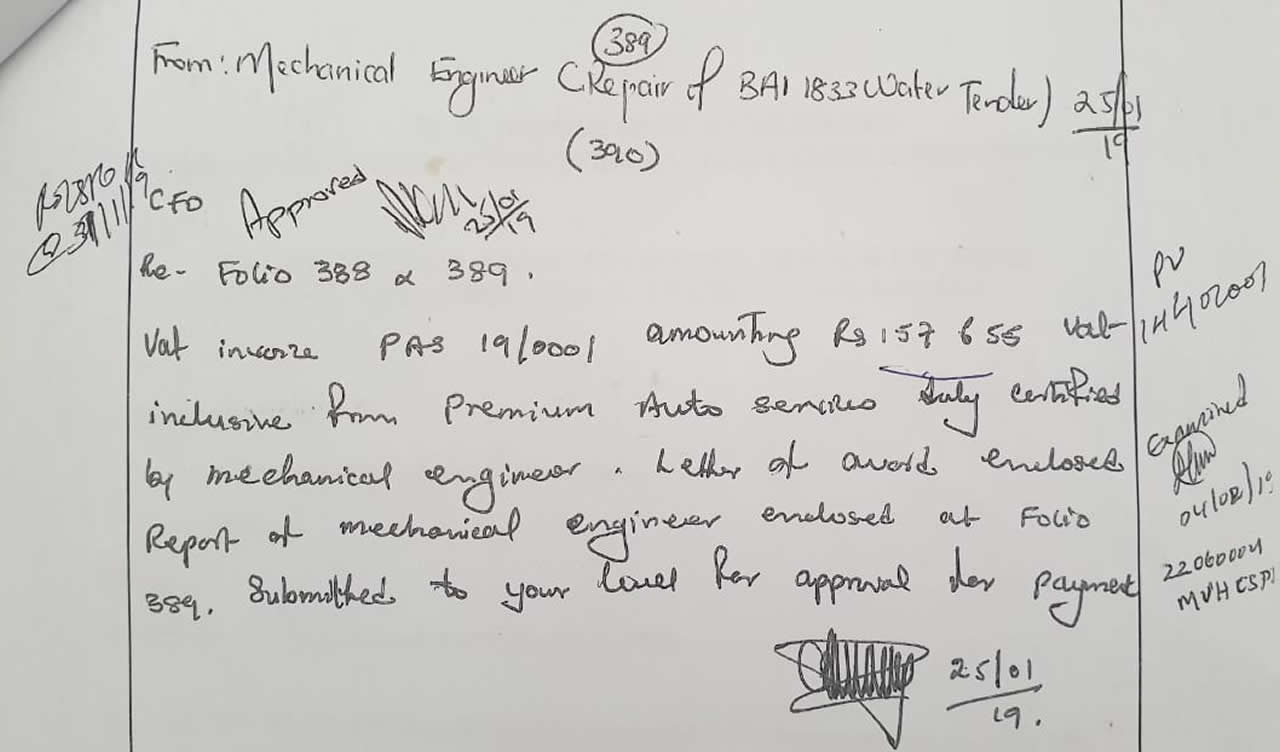 389
From: Mechanical Engineer (Repair of BAI 1833 Water Tender) 25/01/19
(390)
CFO Approved 25/01/19
Re- Folio 388 & 389.
Vat invoice PAS 19/0001 amounting Rs 157 655 Vat
inclusive from Premium Auto services duly certified
by mechanical engineer. Letter of award enclosed
Report of mechanical engineer enclosed at Folio
389. Submitted to your level for approval for payment
25/01/19.
PV
14402001
Examined
04/02/19
22060004
MVH CSPI